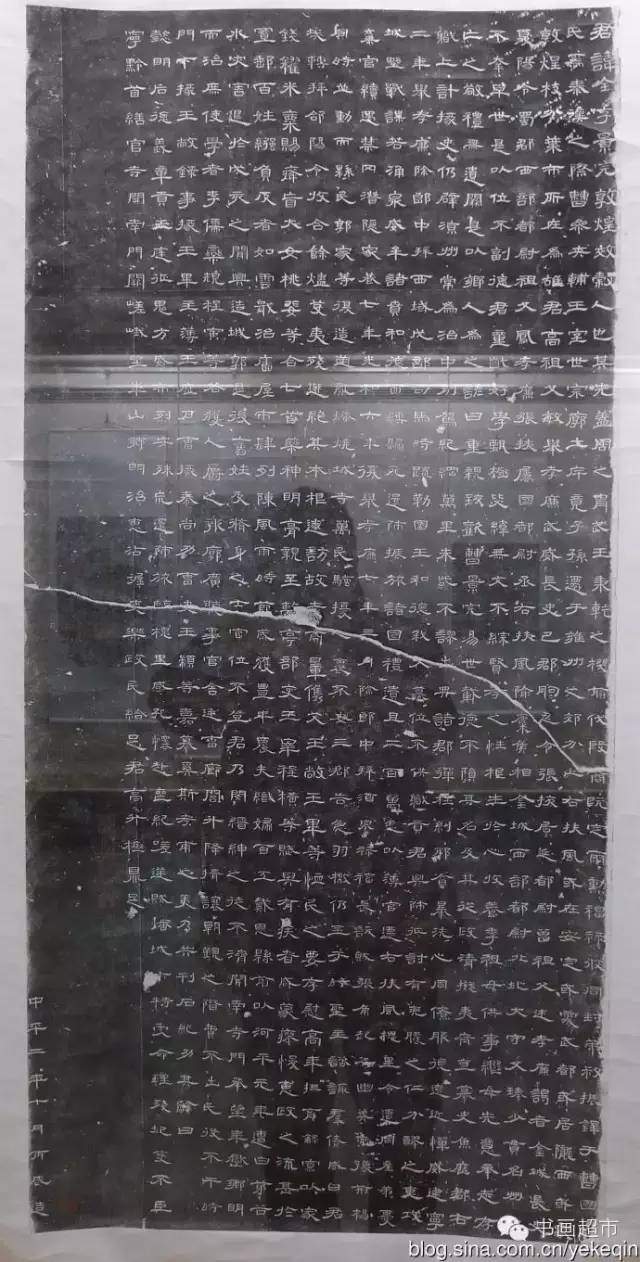 君諱全字景完敦煌效穀人也其先蓋周之冑武王秉乾之機翦伐殷商既定爾勳福祿攸同封弟叔振鐸于曹國因
氏焉秦漢之際曹參夾輔王室世宗廓土斥竟子孫遷于雍州之郊分止右扶風或在安定或處武都或居隴西或家
敦煌枝分葉布所在為雄君高祖父敏舉孝廉武威長史巴郡朐忍令張掖居延都尉曾祖父述孝廉謁者金城長史
夏陽令蜀郡西部都尉祖父鳳孝廉張掖屬國都尉丞右扶風隃麋侯相金城西部都尉北地大守父琫少貫名州郡
不幸早世是以位不副德君童齔好學甄極毖緯無文不綜賢孝之性根生於心收養季祖母供事繼母先意承志存
亡之敬禮無遺闕是以鄉人為之諺曰重親致歡曹景完易世載德不隕其名及其從政清擬夷齊直慕史魚歷郡右
職上計掾史仍辟涼州常為治中別駕紀綱萬里朱紫不謬出典諸郡彈枉糾邪貪暴洗心同僚服德遠近憚威建寧
二年舉孝廉除郎中拜西域戊部司馬時疏勒國王和德弒父篡位不供職貢君興師征討有兗膿之仁分醪之惠攻
城野戰謀若涌泉威牟諸賁和德面縛歸死還師振旅諸國禮遺且二百萬悉以薄官遷右扶風槐里令遭同產弟憂
棄官續遇禁冈潛隱家巷七年光和六年復舉孝廉七年三月除郎中拜酒泉祿福長訞賊張角起兵幽冀兗豫荊楊
同時並動而縣民郭家等復造逆亂燔燒城寺萬民騷擾人裹不安三郡告急羽檄仍至于時聖主諮諏群僚咸曰君
哉轉拜郃陽令收合餘燼芟夷殘迸絕其本根遂訪故老商量儁艾王敞王畢等恤民之要存慰高年撫育鰥寡以家
錢糴米粟賜癃盲大女桃婓等合七首藥神明膏親至離亭部吏王宰程橫等賦與有疾者咸蒙瘳悛惠政之流甚於
置郵百姓繈負反者如雲戢治廧屋市肆列陳風雨時節歲獲豐年農夫織婦百工戴恩縣前以河平元年遭白茅谷
水災害退於戌亥之間興造城郭是後舊姓及脩身之士官位不登君乃閔縉紳之徒不濟開南寺門承望華嶽鄉明
而治庶使學者李儒欒規程寅等各獲人爵之報廓廣聽事官舍廷曹廊閤升降揖讓朝覲之階費不出民役不干時
門下掾王敞錄事掾王畢主薄王歷戶曹掾秦尚功曹史王顓等嘉慕奚斯考甫之美乃共刊石紀功其辭曰
懿明后德義章貢王庭征鬼方威布烈安殊荒還師旅臨槐里感孔懷赴喪紀嗟逆賊燔城市特受命理殘圮芟不臣
寧黔首繕官寺開南門闕嵯峨望華山鄉明治惠沾渥吏樂政民給足君高升極鼎足
中平二年十月丙辰造
书画超市
blog.sina.com.cn/yekeqin